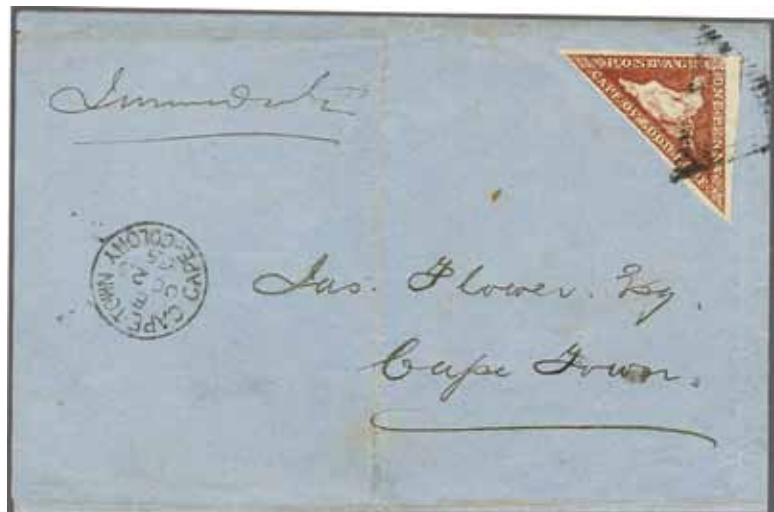 Immediate
POSTAGE
ONE PENNY
CAPE OF GOOD HOPE
CAPE TOWN CAPE-COLONY
Jas. Flower. Esq.
Cape Town.